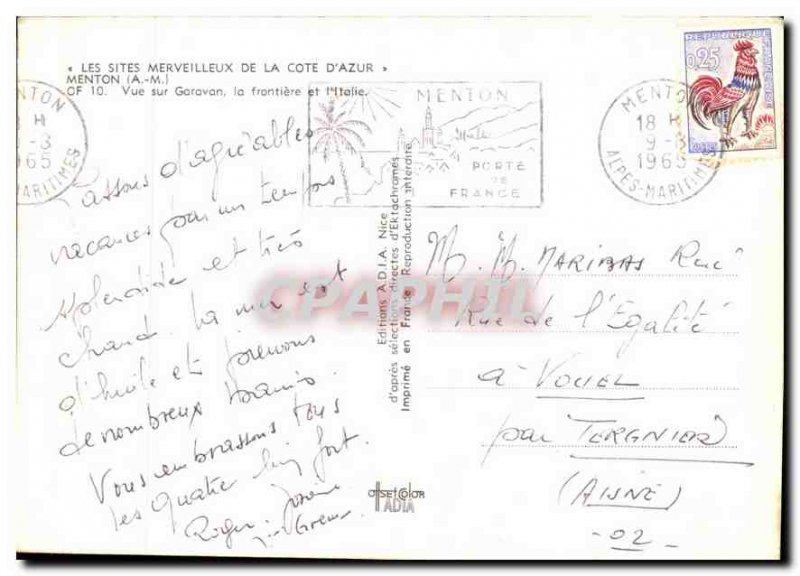 « LES SITES MERVEILLEUX DE LA COTE D'AZUR »
MENTON (A.-M.)
OF 10. Vue sur Garavan, la frontière et l'Italie.
MENTON
PORTE
DE
FRANCE
MENTON
18 H
9-8
1965
ALPES-MARITIMES
REPUBLIQUE FRANÇAISE
0,25
Passons d'agréables
vacances par un temps
splendide et très
chaud. La mer est
d'huile et prenons
de nombreux bains.
Vous embrassons tous
les quatre bien fort.
Roger
Editions A.D.I.A. Nice
d'après sélections directes d'Ektachromes
Imprimé en France Reproduction interdite
M. M. MARIBAS René
Rue de l'Egalité
à VOUEL
par TERGNIER
(AISNE)
-02-
OFFSETCOLOR
ADIA
CPAPHIL